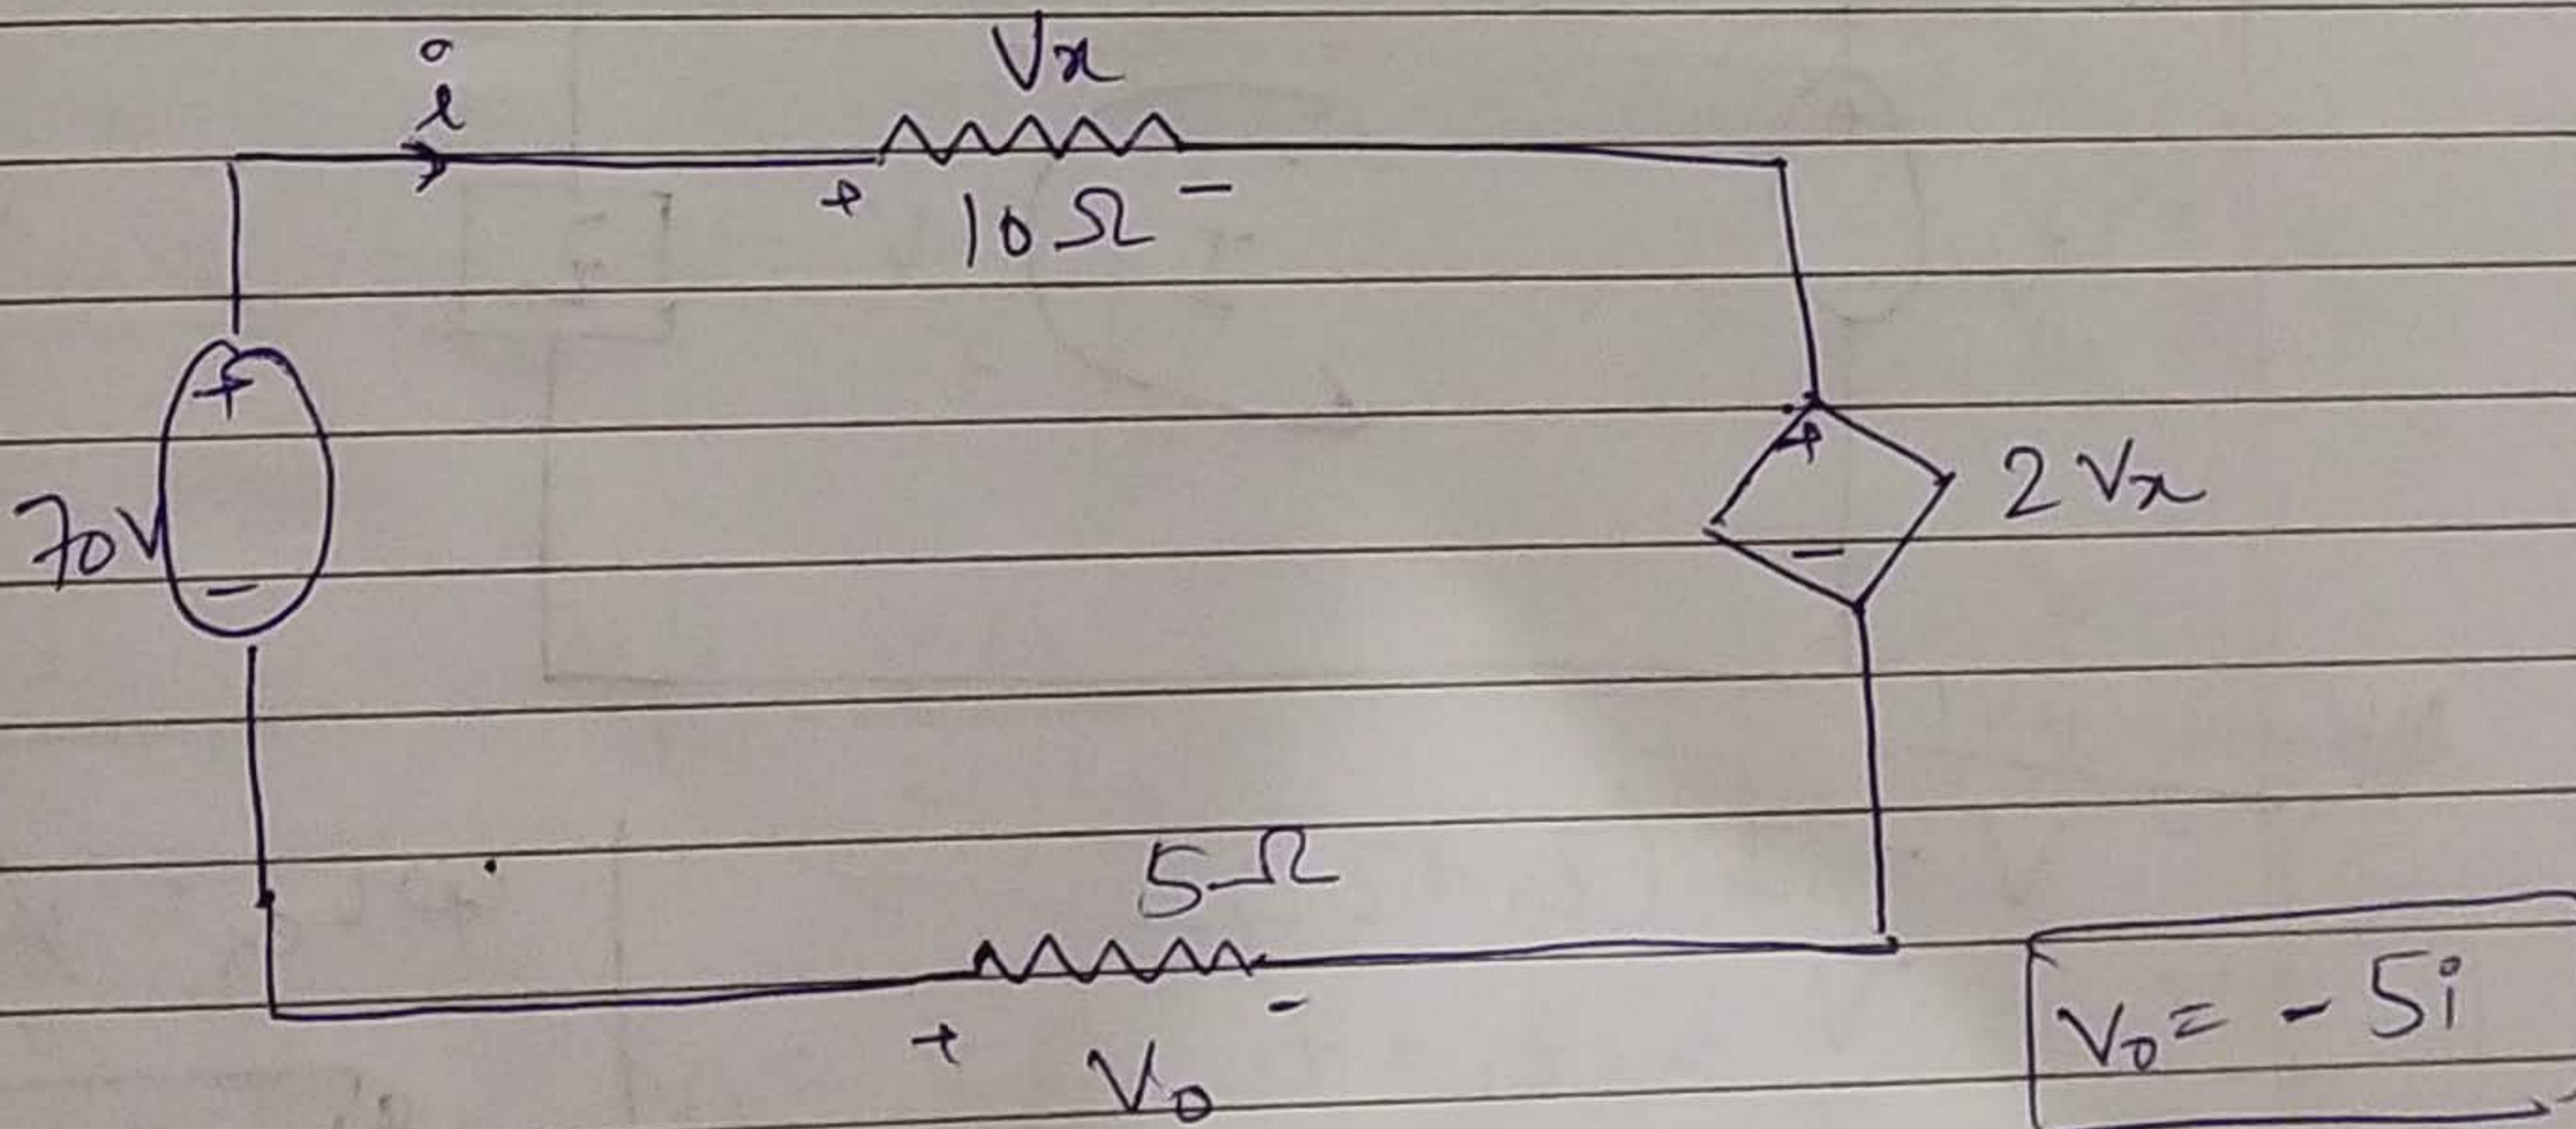 i
Vx
+ 10Ω -
+
-
70V
+
-
2Vx
5Ω
+ V₀ -
V₀ = - 5i